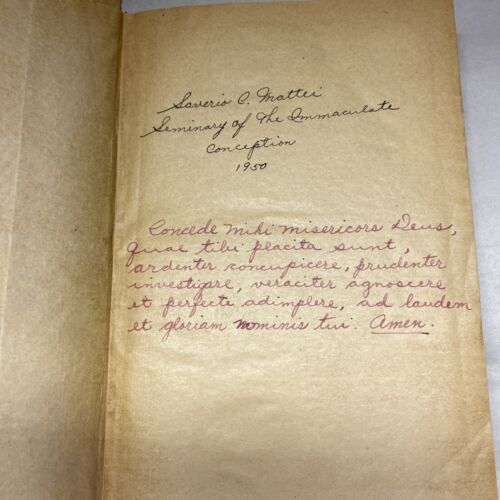 Saverio C. Mattei
Seminary of The Immaculate
Conception
1950
Concede mihi misericors Deus,
quae tibi placita sunt,
ardenter concupicere, prudenter
investigare, veraciter agnoscere
et perfecte adimplere, ad laudem
et gloriam nominis tui. Amen.